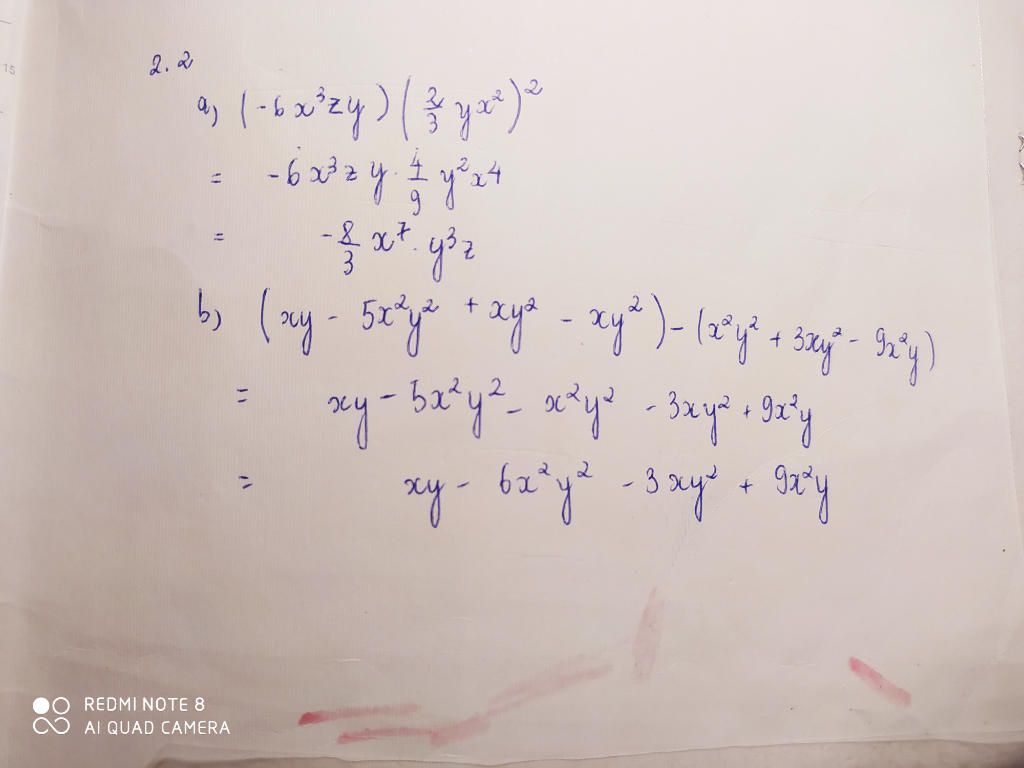 2.2
a) (-6x³zy)(2/3 yx²)²
= -6x³zy · 4/9 y²x⁴
= -8/3 x⁷ · y³z
b) (xy - 5x²y² + xy² - xy²) - (x²y² + 3xy² - 9x²y)
= xy - 5x²y² - x²y² - 3xy² + 9x²y
= xy - 6x²y² - 3xy² + 9x²y
REDMI NOTE 8
AI QUAD CAMERA